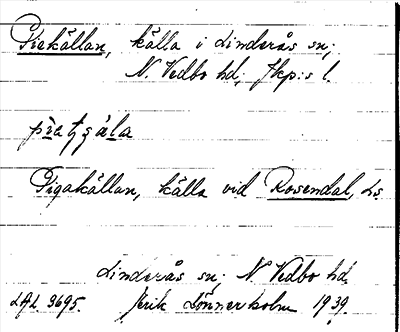 Piakällan, källa i Linderås sn;
N. Vedbo hd; Jkp:s l.
Pigakällan, källa vid Rosendal, Ls.
Linderås sn; N. Vedbo hd.
LAL 3695. Erik Lönnerholm 1939.